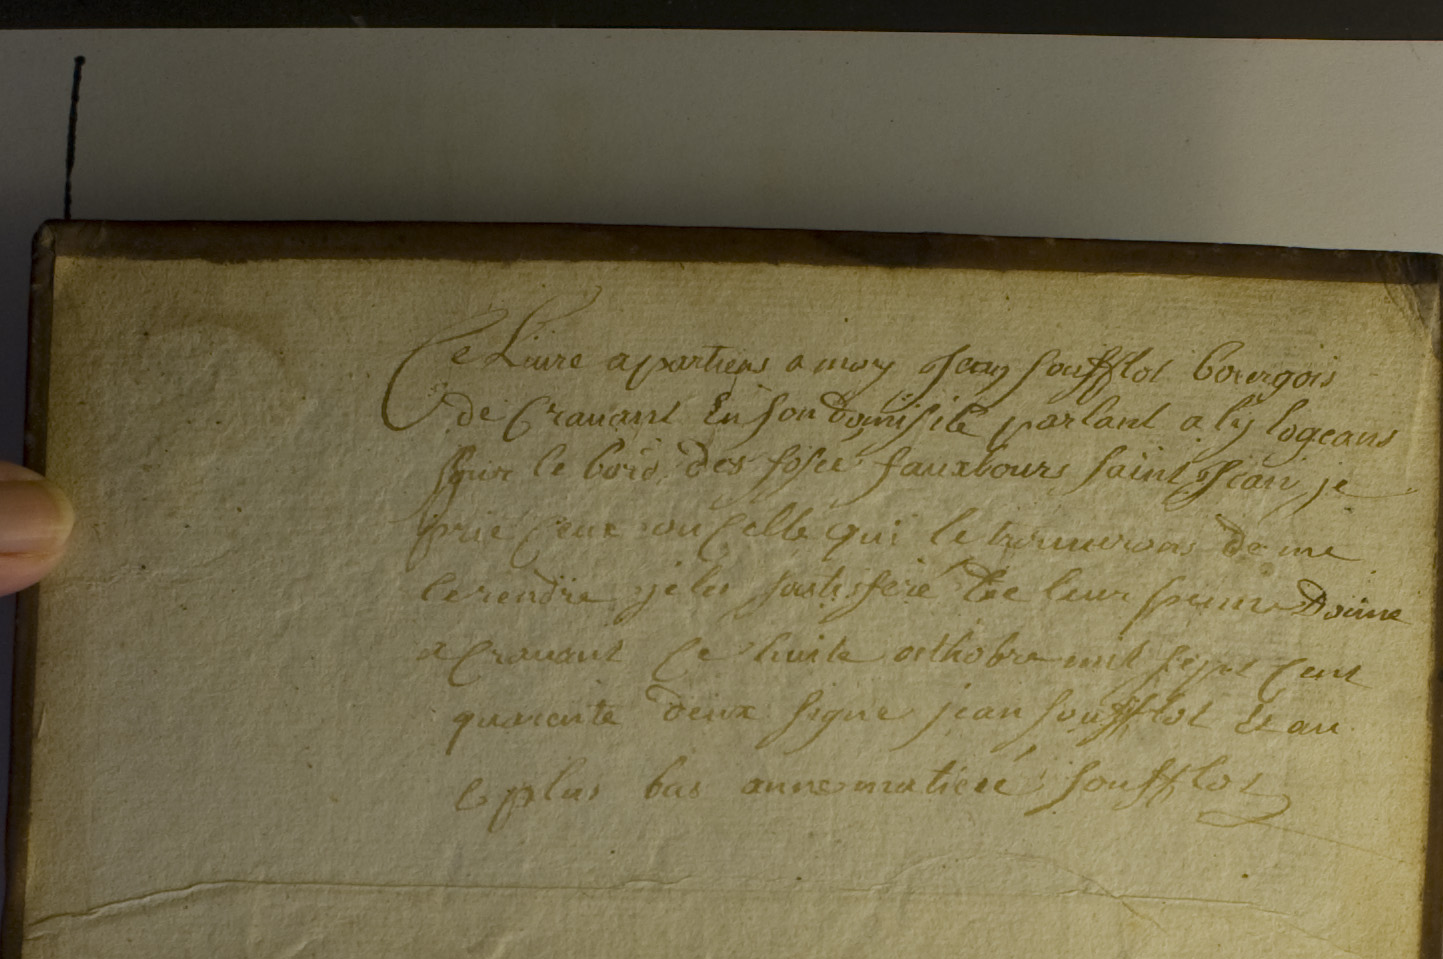 Ce Livre apartiens a moy Jean Soufflot bourgois
de Cravant En son Domisile parlant a ly logeans
sur le bord des fosée fauxbours saint Jean je
prie Ceux ou Celle qui le trouverons de me
le rendre je les satisferé de leur peinne Donne
a Cravant Ce huite octhobre mil sept Cent
quarente deux signe jean soufflot Et au
le plus bas anne matieé soufflot